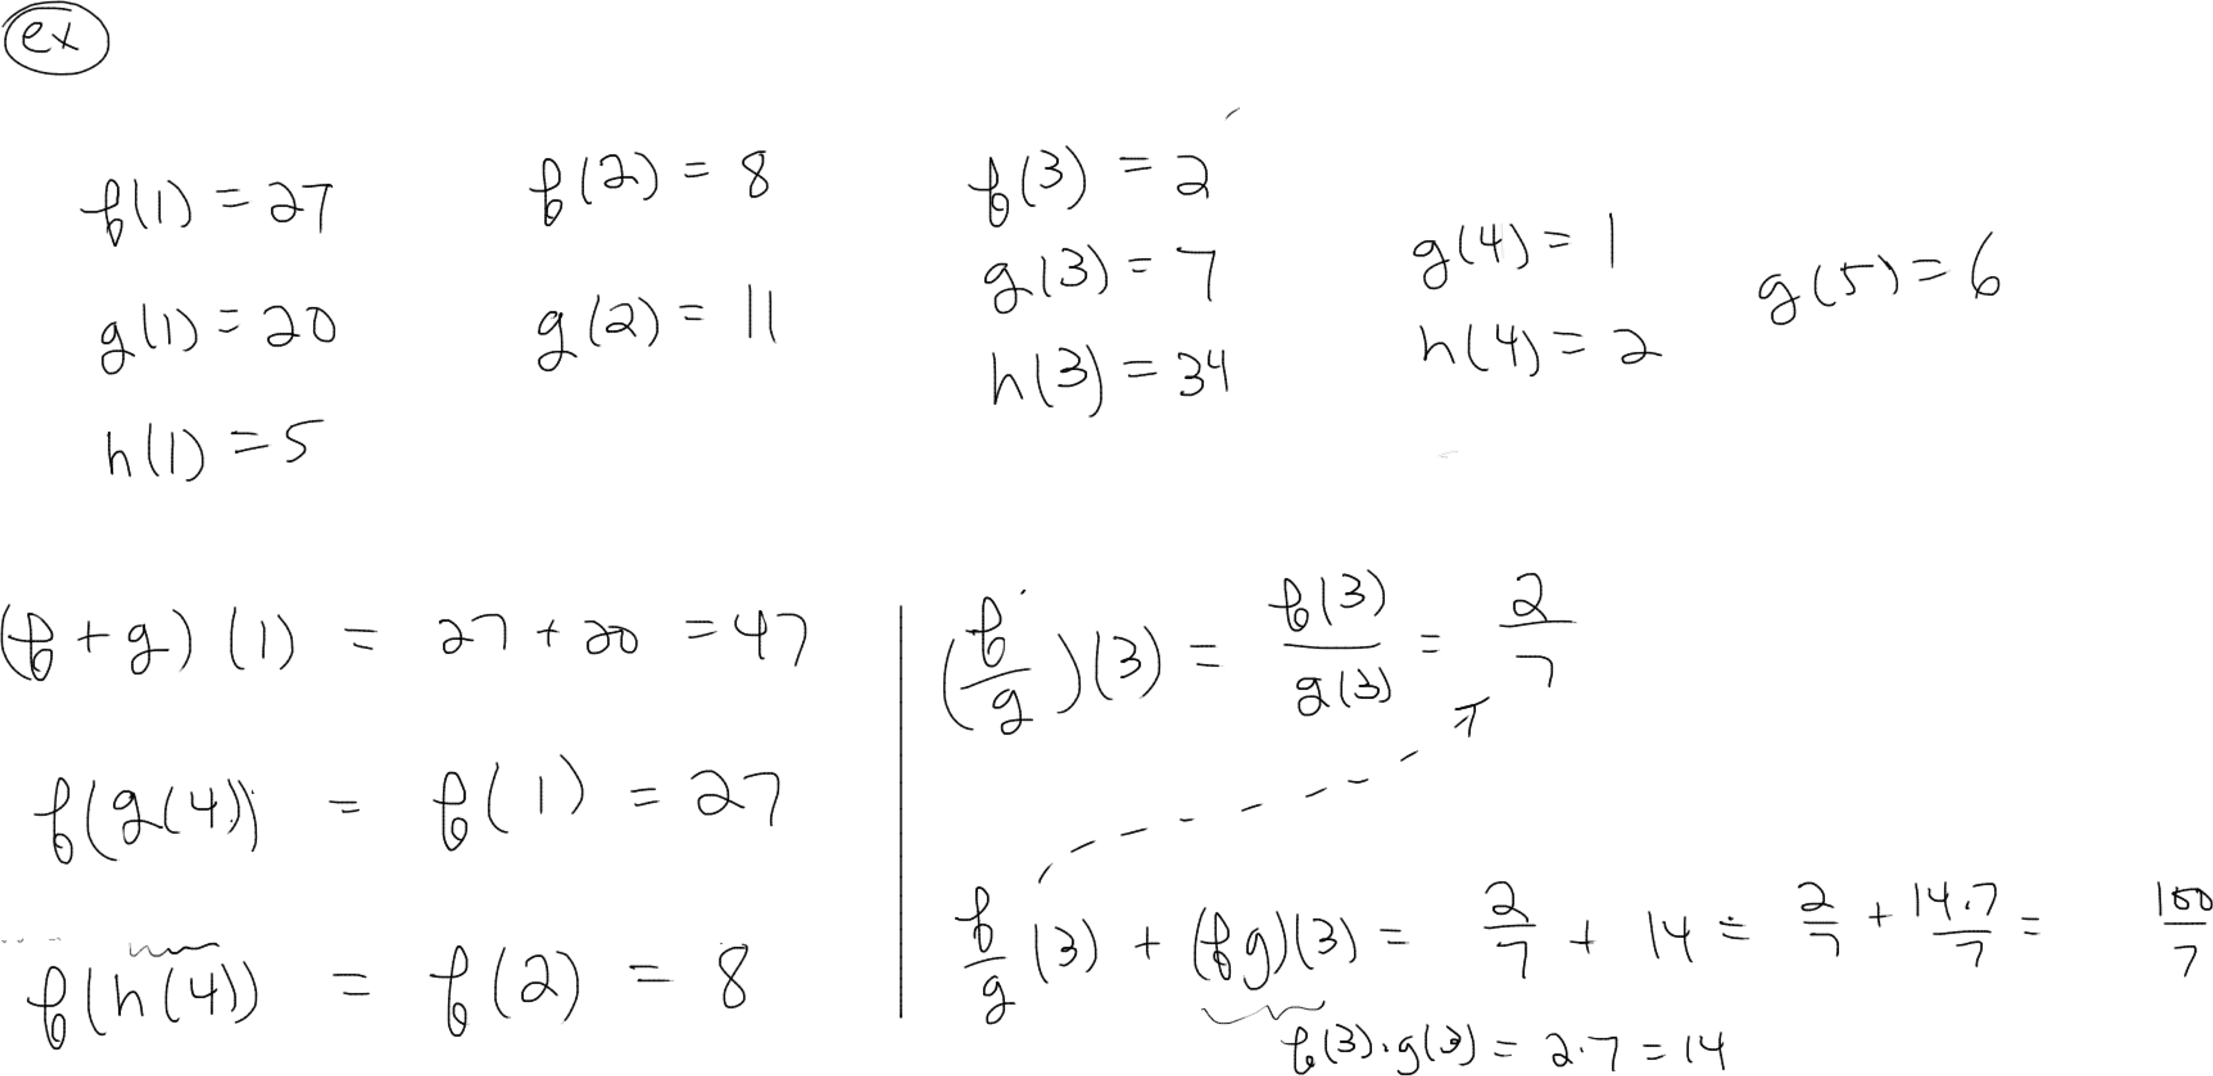 ex
f(1) = 27
g(1) = 20
h(1) = 5
f(2) = 8
g(2) = 11
f(3) = 2
g(3) = 7
h(3) = 34
g(4) = 1
h(4) = 2
g(5) = 6
(f + g)(1) = 27 + 20 = 47
f(g(4)) = f(1) = 27
f(h(4)) = f(2) = 8
(f/g)(3) = f(3)/g(3) = 2/7
f/g (3) + (fg)(3) = 2/7 + 14 = 2/7 + 14·7/7 = 100/7
f(3)·g(3) = 2·7 = 14